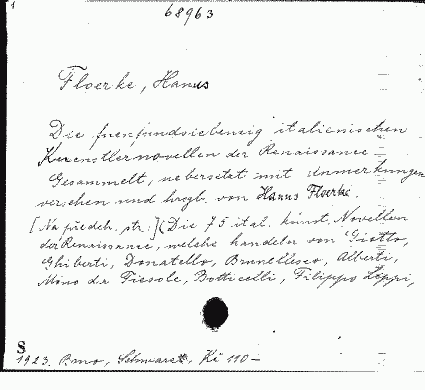 1
68963
Floerke, Hanns
Die fuenfundsiebenzig italienischen
Kuenstlernovellen der Renaissance
Gesammelt, uebersetzt mit Anmerkungen
versehen und hrsgb. von Hanns Floerke.
[Na předch. str.:] (Die 75 ital. künst. Novellen
der Renaissance, welche handeln von Giotto,
Ghiberti, Donatello, Brunellesco, Alberti,
Mino da Fiesole, Botticelli, Filippo Lippi,
S
1923. Brno, Schwarz, Kč 110-